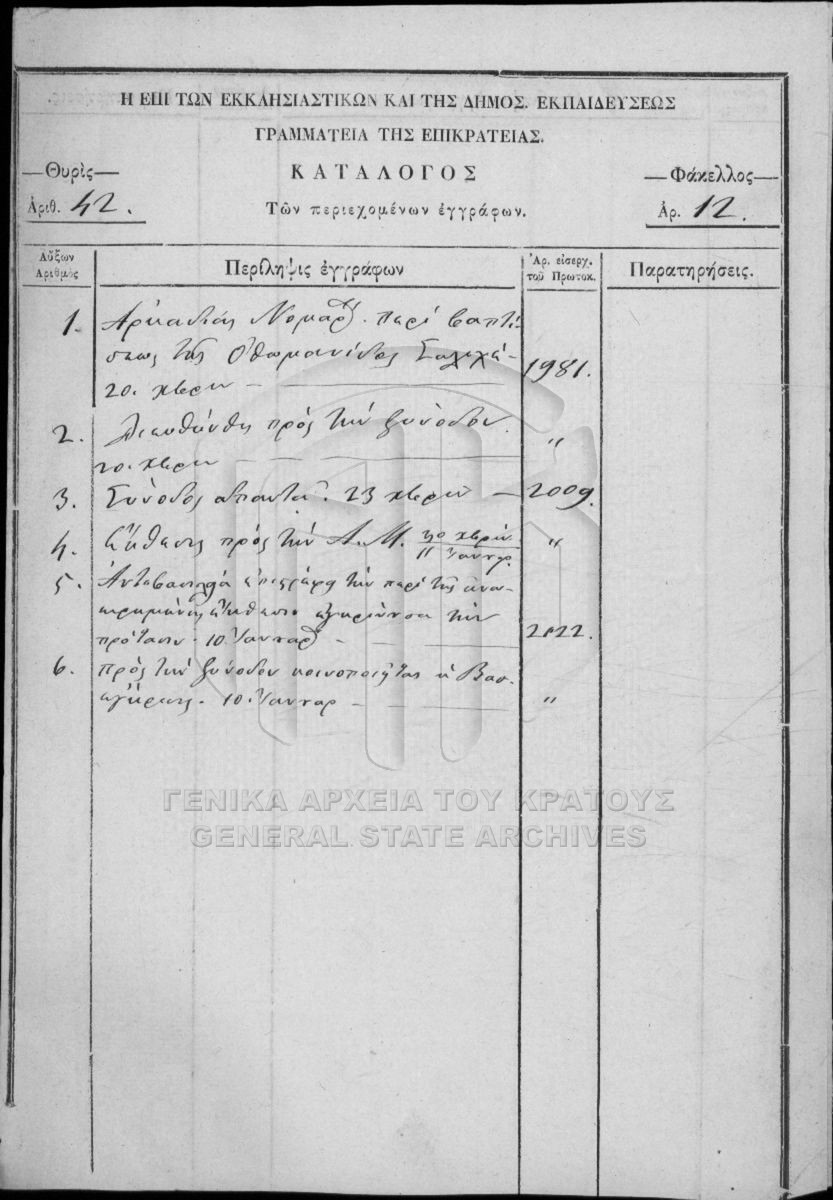 Η ΕΠΙ ΤΩΝ ΕΚΚΛΗΣΙΑΣΤΙΚΩΝ ΚΑΙ ΤΗΣ ΔΗΜΟΣ. ΕΚΠΑΙΔΕΥΣΕΩΣ
ΓΡΑΜΜΑΤΕΙΑ ΤΗΣ ΕΠΙΚΡΑΤΕΙΑΣ.
—Θυρὶς—
ΚΑΤΑΛΟΓΟΣ
—Φάκελλος—
Ἀριθ. 42.
Τῶν περιεχομένων ἐγγράφων.
Ἀρ. 12.
Αὔξων Ἀριθμὸς
Περίληψις ἐγγράφων
Ἀρ. εἰσερχ. τοῦ Πρωτοκ.
Παρατηρήσεις.
1. Ἀρκαδίας Νομαρχ. περὶ βαπτί-
σεως τῆς Ὀθωμανίδος
20. χβρίου — 1981.
2. Διευθύνθη πρὸς τὴν Σύνοδον.
20. χβρίου — "
3. Σύνοδος ἀπαντᾷ. 23 χβρίου — 2009.
4. Ἔκθεσις πρὸς τὴν Α.Μ. 30 χβρίου / 11 Ἰανουαρ. "
5. ἐπιστρέφει τὴν περὶ τῆς ἀνω-
ἔκθεσιν ἐγκρίνουσα τὴν
πρότασιν. 10 Ἰανουαρ. — 2122.
6. πρὸς τὴν Σύνοδον κοινοποιεῖται ἡ Βασ.
ἔγκρισις. 10. Ἰανουαρ — "
ΓΕΝΙΚΑ ΑΡΧΕΙΑ ΤΟΥ ΚΡΑΤΟΥΣ
GENERAL STATE ARCHIVES